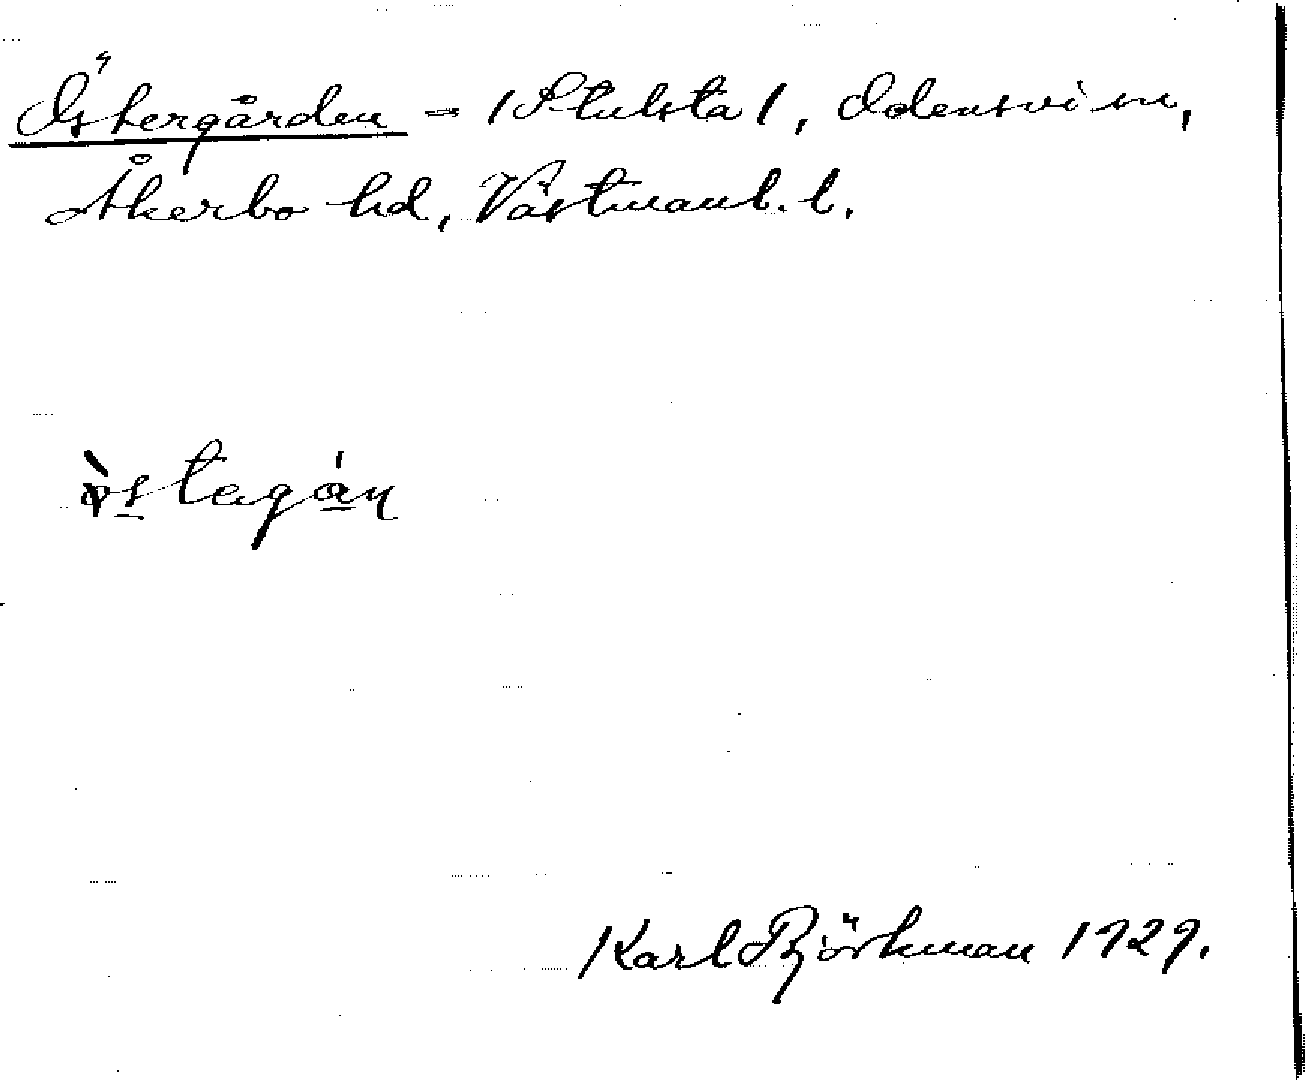 Östergården = (Stulsta), Odensvi sn,
Åkerbo hd, Västmanl. l.
Karl Björkman 1929.